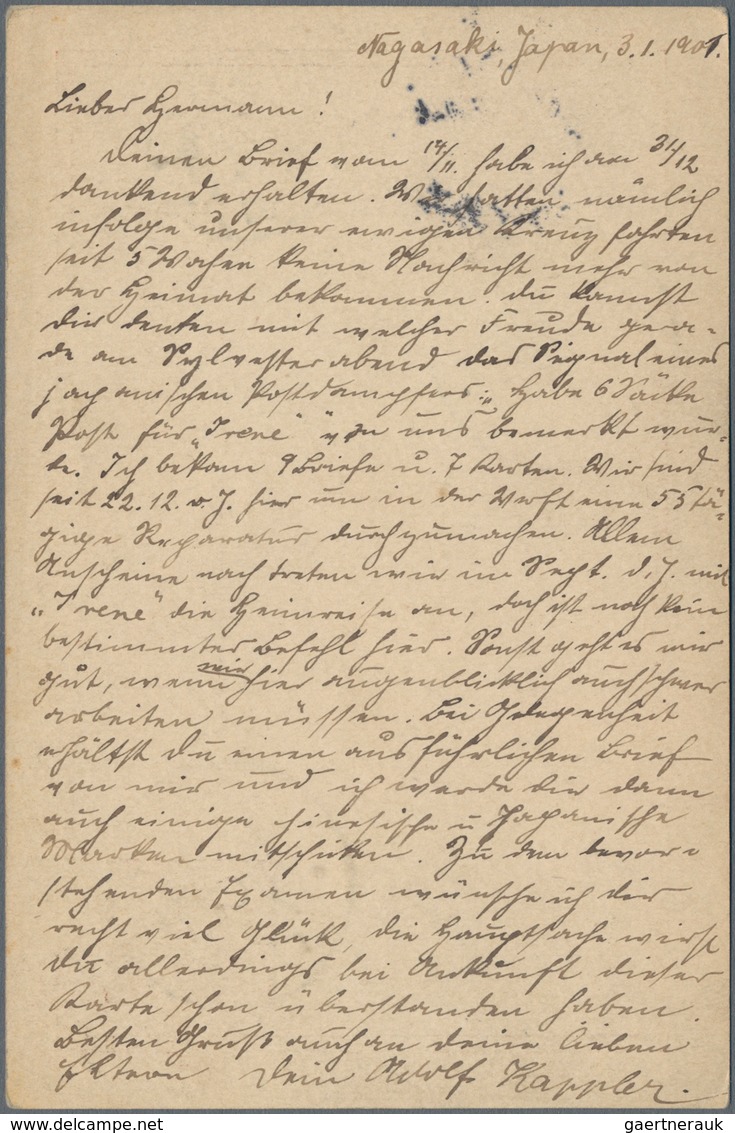 Nagasaki, Japan, 3.1.1901.
Lieber Hermann!
Deinen Brief vom 14/11. habe ich am 31/12
dankend erhalten. Wir hatten nämlich
infolge unserer ewigen Kreuzfahrten
seit 5 Wochen keine Nachricht mehr von
der Heimat bekommen. Du kannst
dir denken mit welcher Freude gera-
de am Sylvesterabend das Signal eines
japanischen Postdampfers: „Habe 6 Säcke
Post für „Irene" von uns bemerkt wur-
de. Ich bekam 9 Briefe u. 7 Karten. Wir sind
seit 22.12. v. J. hier um in der Werft eine 55 tä-
gige Reparatur durchzumachen. Allem
Anscheine nach treten wir im Sept. d. J. mit
„Irene" die Heimreise an, doch ist noch kein
bestimmter Befehl hier. Sonst geht es mir
gut, wenn wir hier augenblicklich auch schwer
arbeiten müssen. Bei Gelegenheit
erhältst Du einen ausführlichen Brief
von mir und ich werde Dir dann
auch einige chinesische u. Japanische
Marken mitschicken. Zu dem bevor-
stehenden Examen wünsche ich Dir
recht viel Glück, die Hauptsache wirst
Du allerdings bei Ankunft dieser
Karte schon überstanden haben.
Besten Gruß auch an deine lieben
Eltern Dein Adolf Kappler.
gaertnerauk